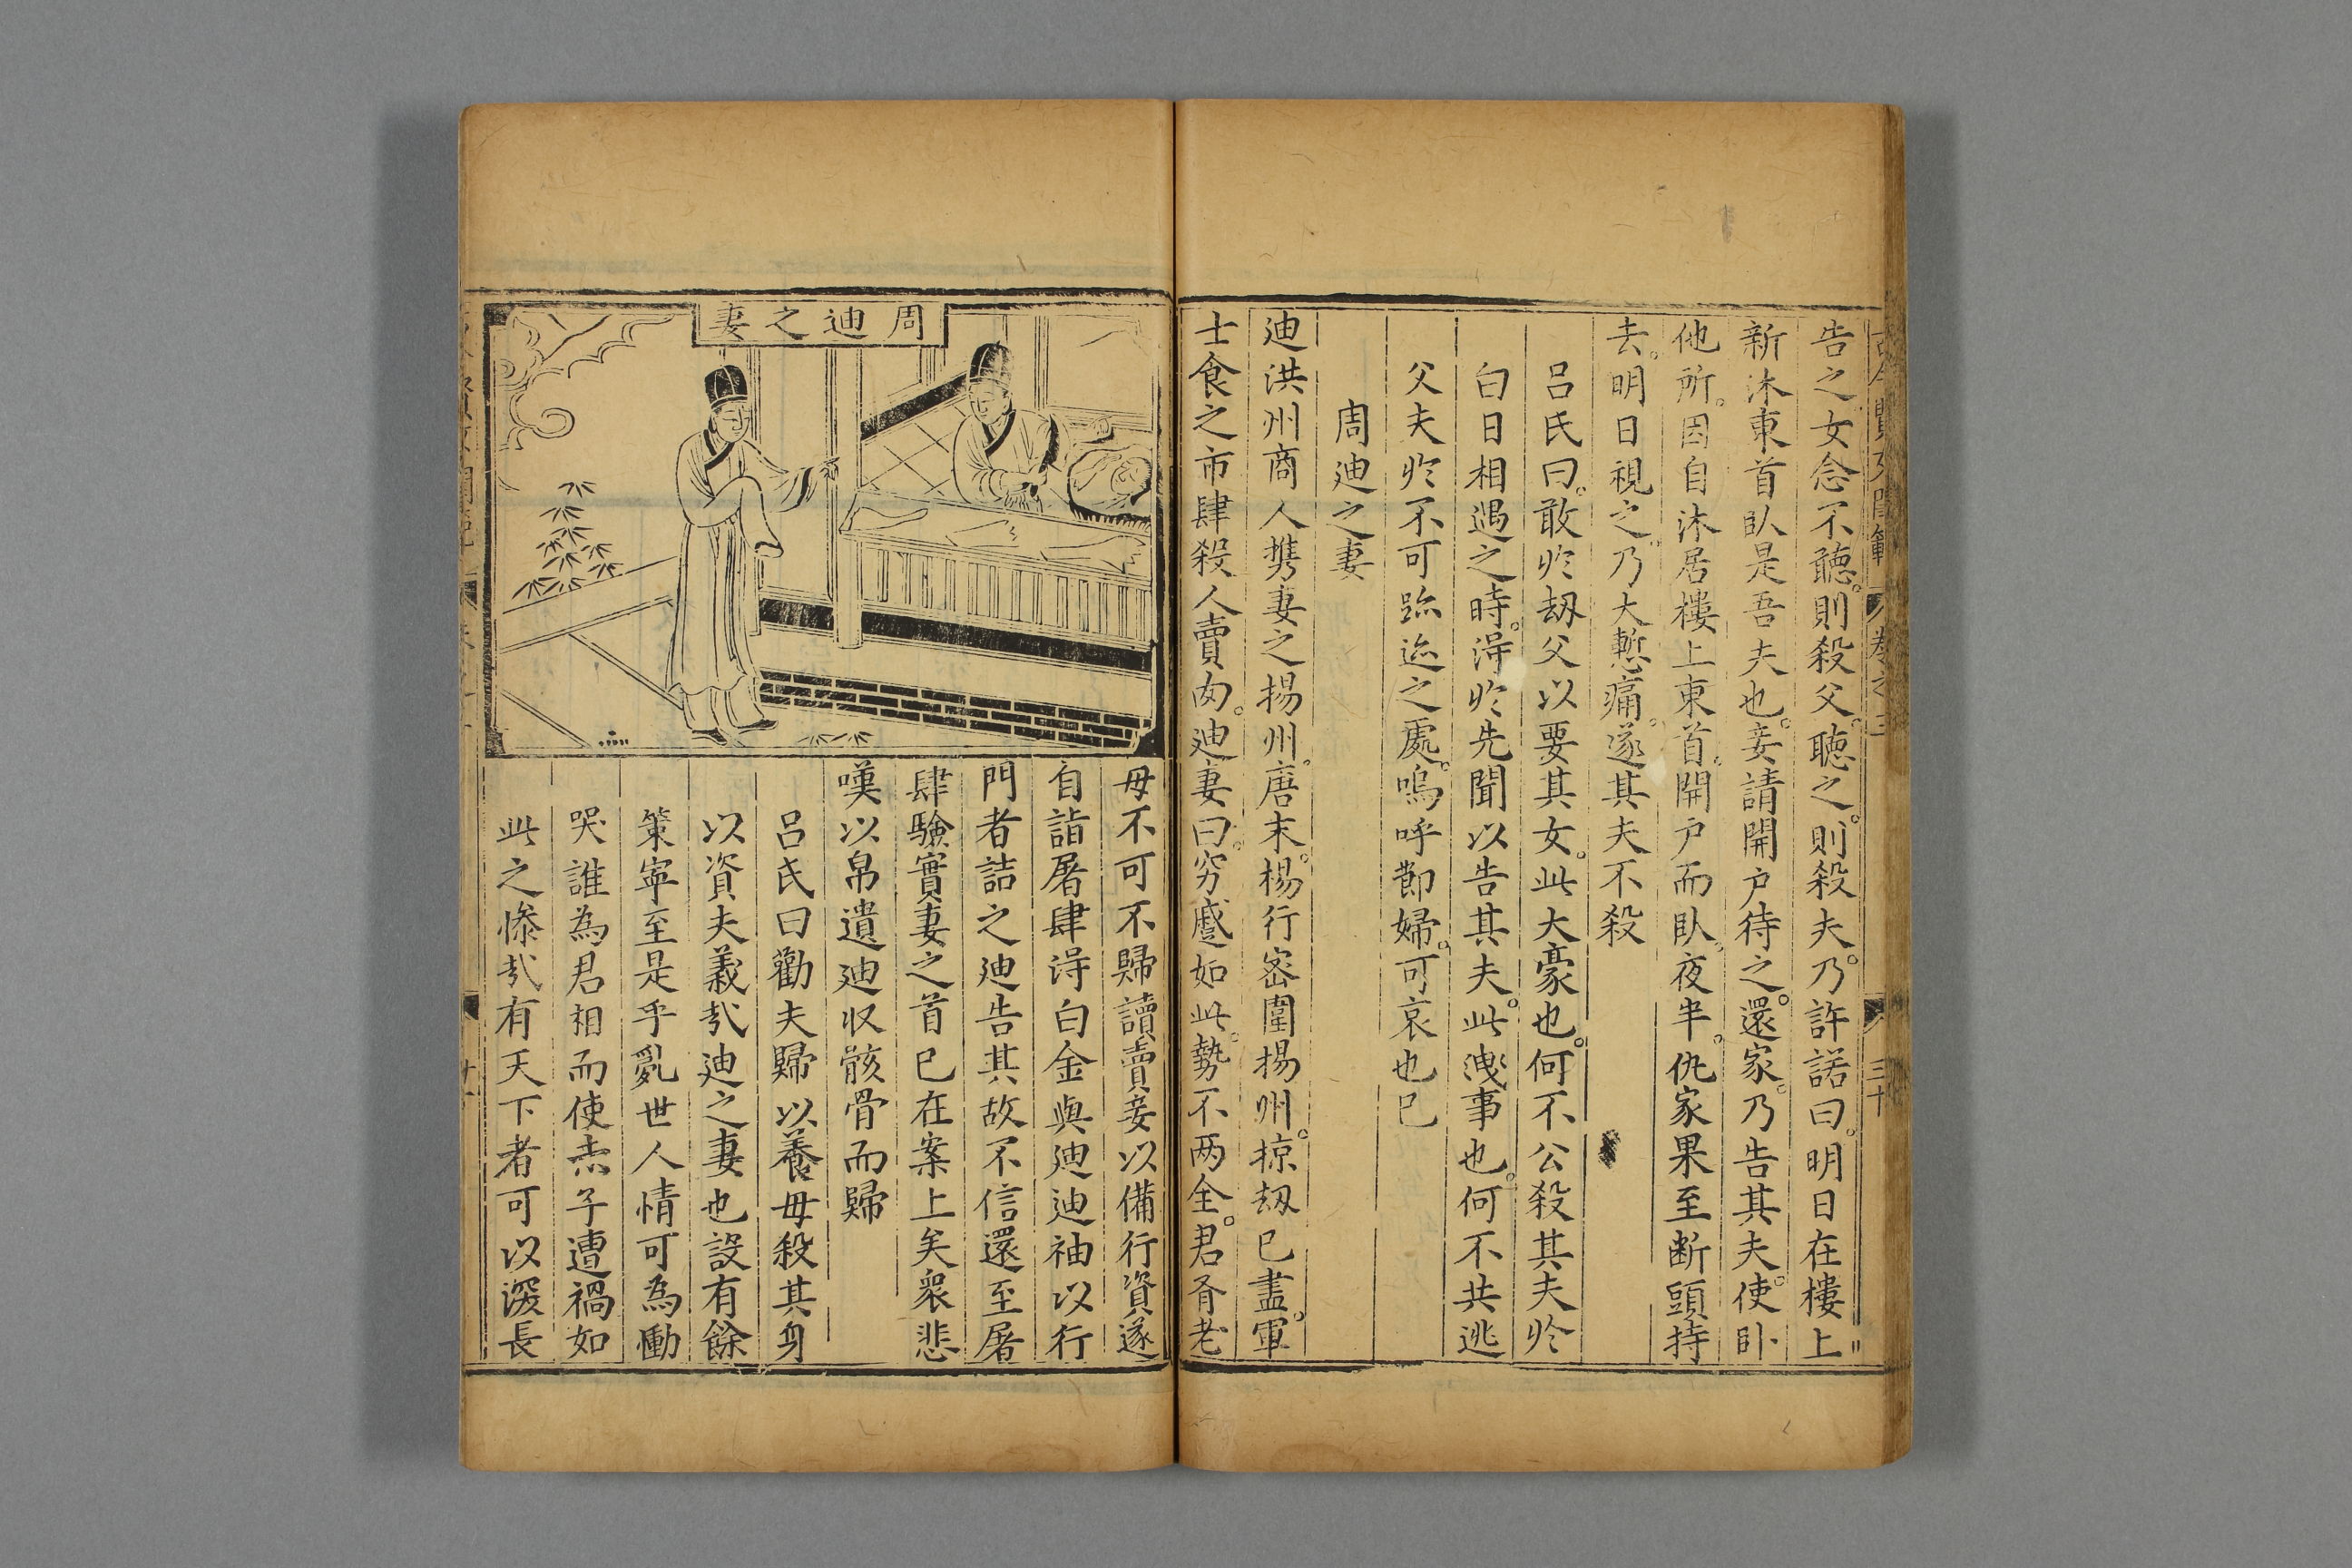 告之女念不聽則殺父聽之則殺夫乃許諾曰明日在樓上
新沐東首臥是吾夫也妾請開户待之還家乃告其夫使卧
他所因自沐居樓上東首開户而臥夜半仇家果至断頭持
去明日視之乃大慙痛遂其夫不殺
吕氏曰敢扵刼父以要其女此大豪也何不公殺其夫扵
白日相遇之時淂扵先聞以告其夫此洩事也何不共逃
父夫扵不可踪迹之處嗚呼節婦可哀也已
周迪之妻
迪洪州商人携妻之揚州唐末楊行密圍揚州掠刼已盡軍
士食之市肆殺人賣肉迪妻曰穷蹙如此勢不两全君有老
周迪之妻
母不可不歸請賣妾以備行資遂
自詣屠肆淂白金與迪迪袖以行
門者詰之迪告其故不信還至屠
肆驗實妻之首已在案上矣衆悲
嘆以帛遺迪収骸骨而歸
吕氏曰勸夫歸以養母殺其身
以資夫義㦲迪之妻也設有餘
策寧至是乎亂世人情可為慟
哭誰為君相而使赤子遭禍如
此之惨㦲有天下者可以深長
卷之三
三十